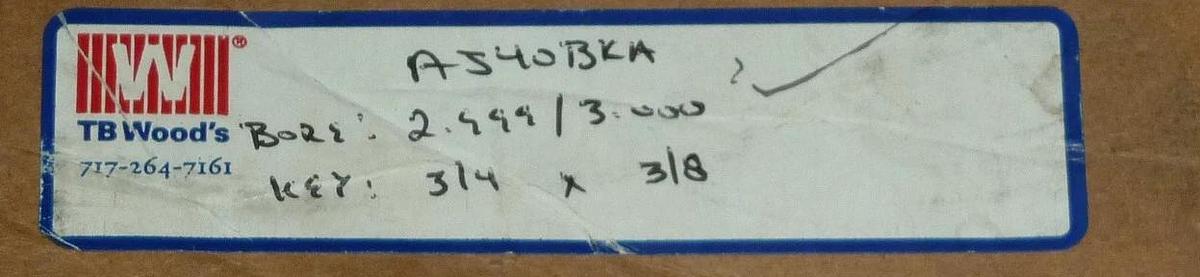 W®
AS40BKA
TB Wood's
BORE: 2.999 / 3.000
717-264-7161
KEY: 3/4 x 3/8